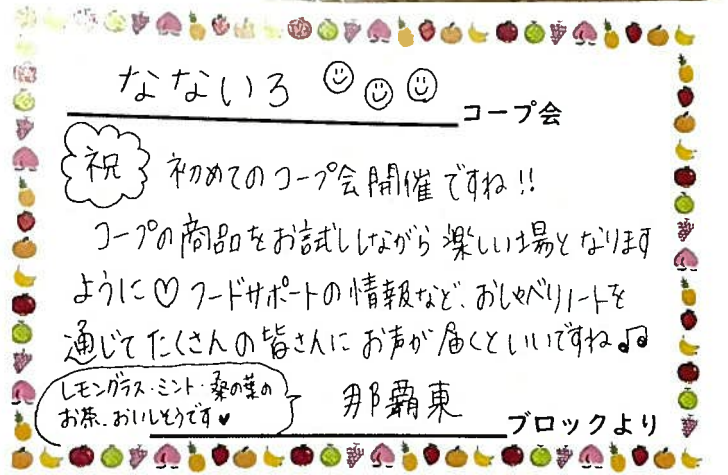 なないろ コープ会
祝 初めてのコープ会開催ですね!!
コープの商品をお試ししながら楽しい場となります
ように♡フードサポートの情報など、おしゃべりノートを
通じてたくさんの皆さんにお声が届くといいですね♫
レモングラス・ミント・桑の葉の
お茶、おいしそうです♥
那覇東 ブロックより